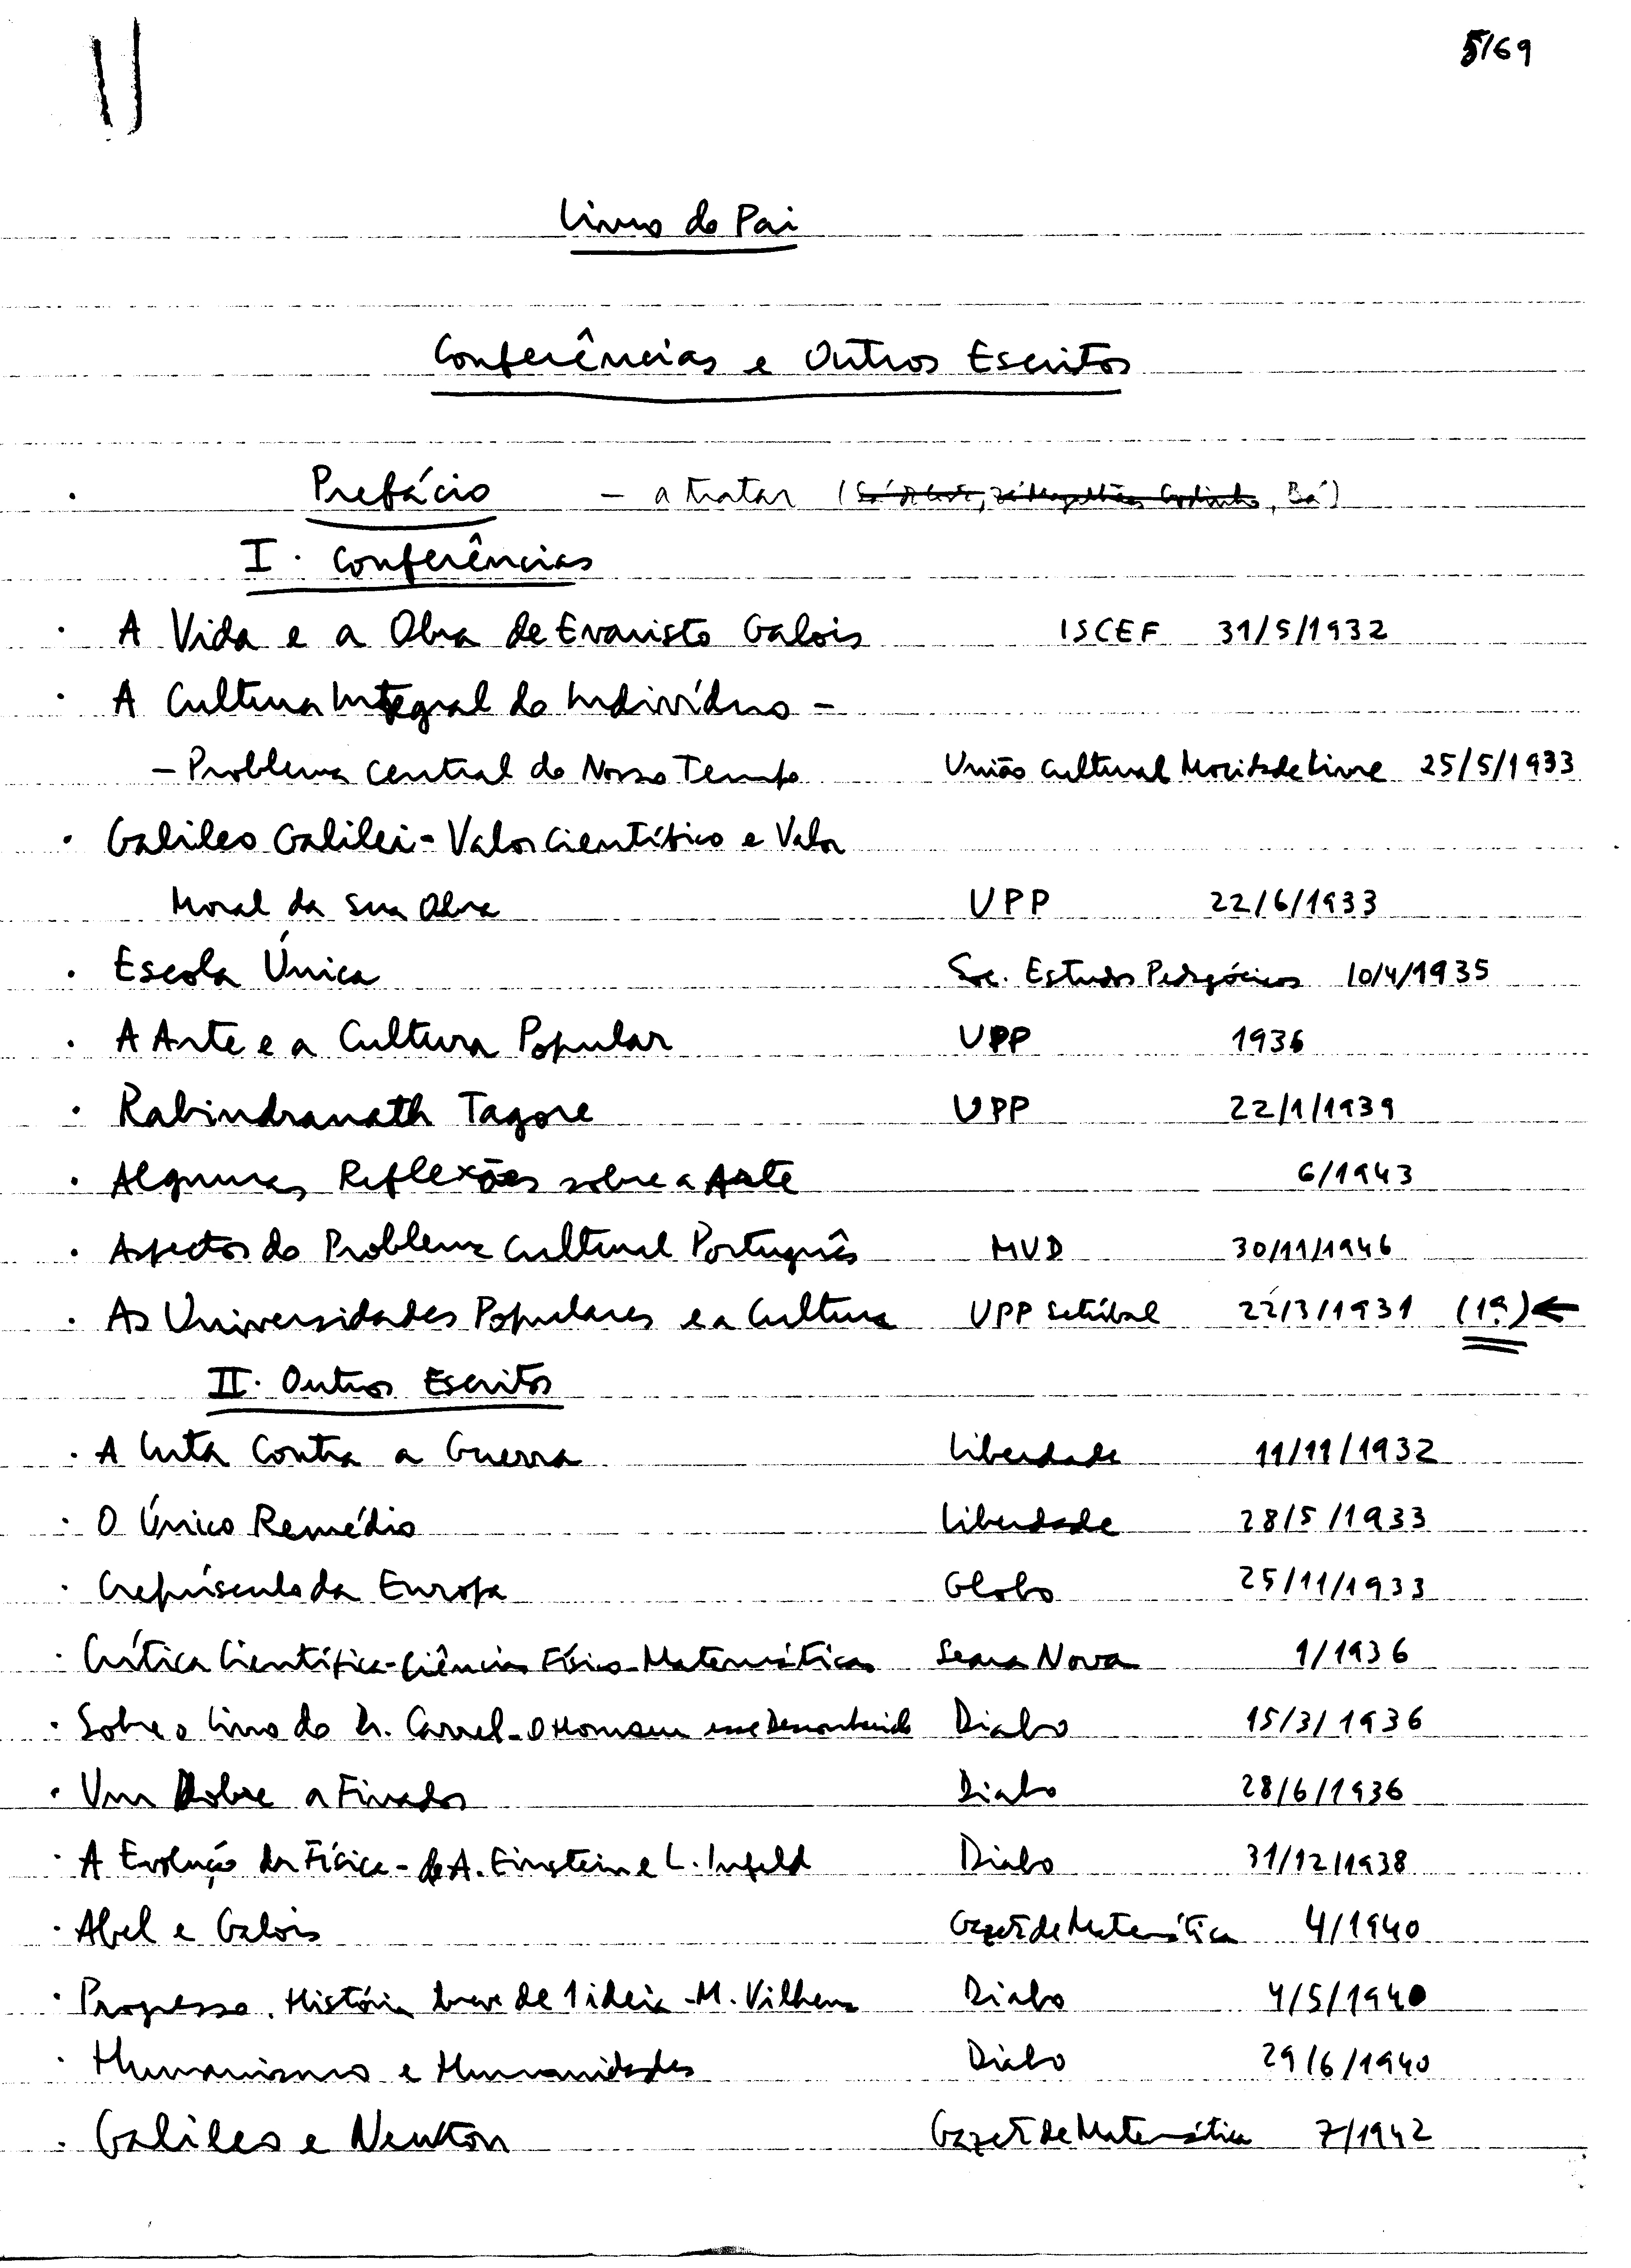 5/69
Livro do Pai
Conferências e Outros Escritos
. Prefácio – a tratar ( , Bá)
I. Conferências
. A Vida e a Obra de Evaristo Galois ISCEF 31/5/1932
. A Cultura Integral do Indivíduo –
– Problema Central do Nosso Tempo União Cultural Mocidade Livre 25/5/1933
. Galileo Galilei - Valor Científico e Valor
Moral da sua Obra UPP 22/6/1933
. Escola Única Soc. Estudos Pedagógicos 10/4/1935
. A Arte e a Cultura Popular UPP 1936
. Rabindranath Tagore UPP 22/1/1939
. Algumas Reflexões sobre a Arte 6/1943
. Aspectos do Problema Cultural Português MUD 30/11/1946
. As Universidades Populares e a Cultura UPP Setúbal 22/3/1931 (1ª) ←
II. Outros Escritos
. A Luta Contra a Guerra Liberdade 11/11/1932
. O Único Remédio Liberdade 28/5/1933
. Crepúsculo da Europa Globo 25/11/1933
. Crítica Científica - Ciências Físico-Matemáticas Seara Nova 1/1936
. Sobre o Livro do Dr. Carrel - O Homem esse Desconhecido Diabo 15/3/1936
. Um Dobre a Finados Diabo 28/6/1936
. A Evolução da Física - de A. Einstein e L. Infeld Diabo 31/12/1938
. Abel e Galois Gazeta de Matemática 4/1940
. Progresso. História breve de 1 ideia - M. Vilhena Diabo 4/5/1940
. Humanismo e Humanidades Diabo 29/6/1940
. Galileo e Newton Gazeta de Matemática 7/1942